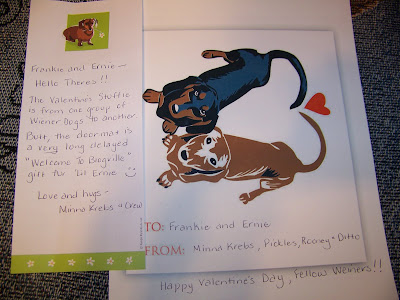 Frankie and Ernie —
Hello Theres!!
The Valentine's Stuffie
is from one group of
Wiener Dogs to another.
Butt, the doormat is
a very long delayed
"Welcome To Blogville"
gift fur Lil Ernie
Love and hugs -
Minna Krebs "Crew
TO: Frankie and Ernie
FROM: Minna Krebs, Pickles, Rooney + Ditto
Happy Valentine's Day, Fellow Weiners!!